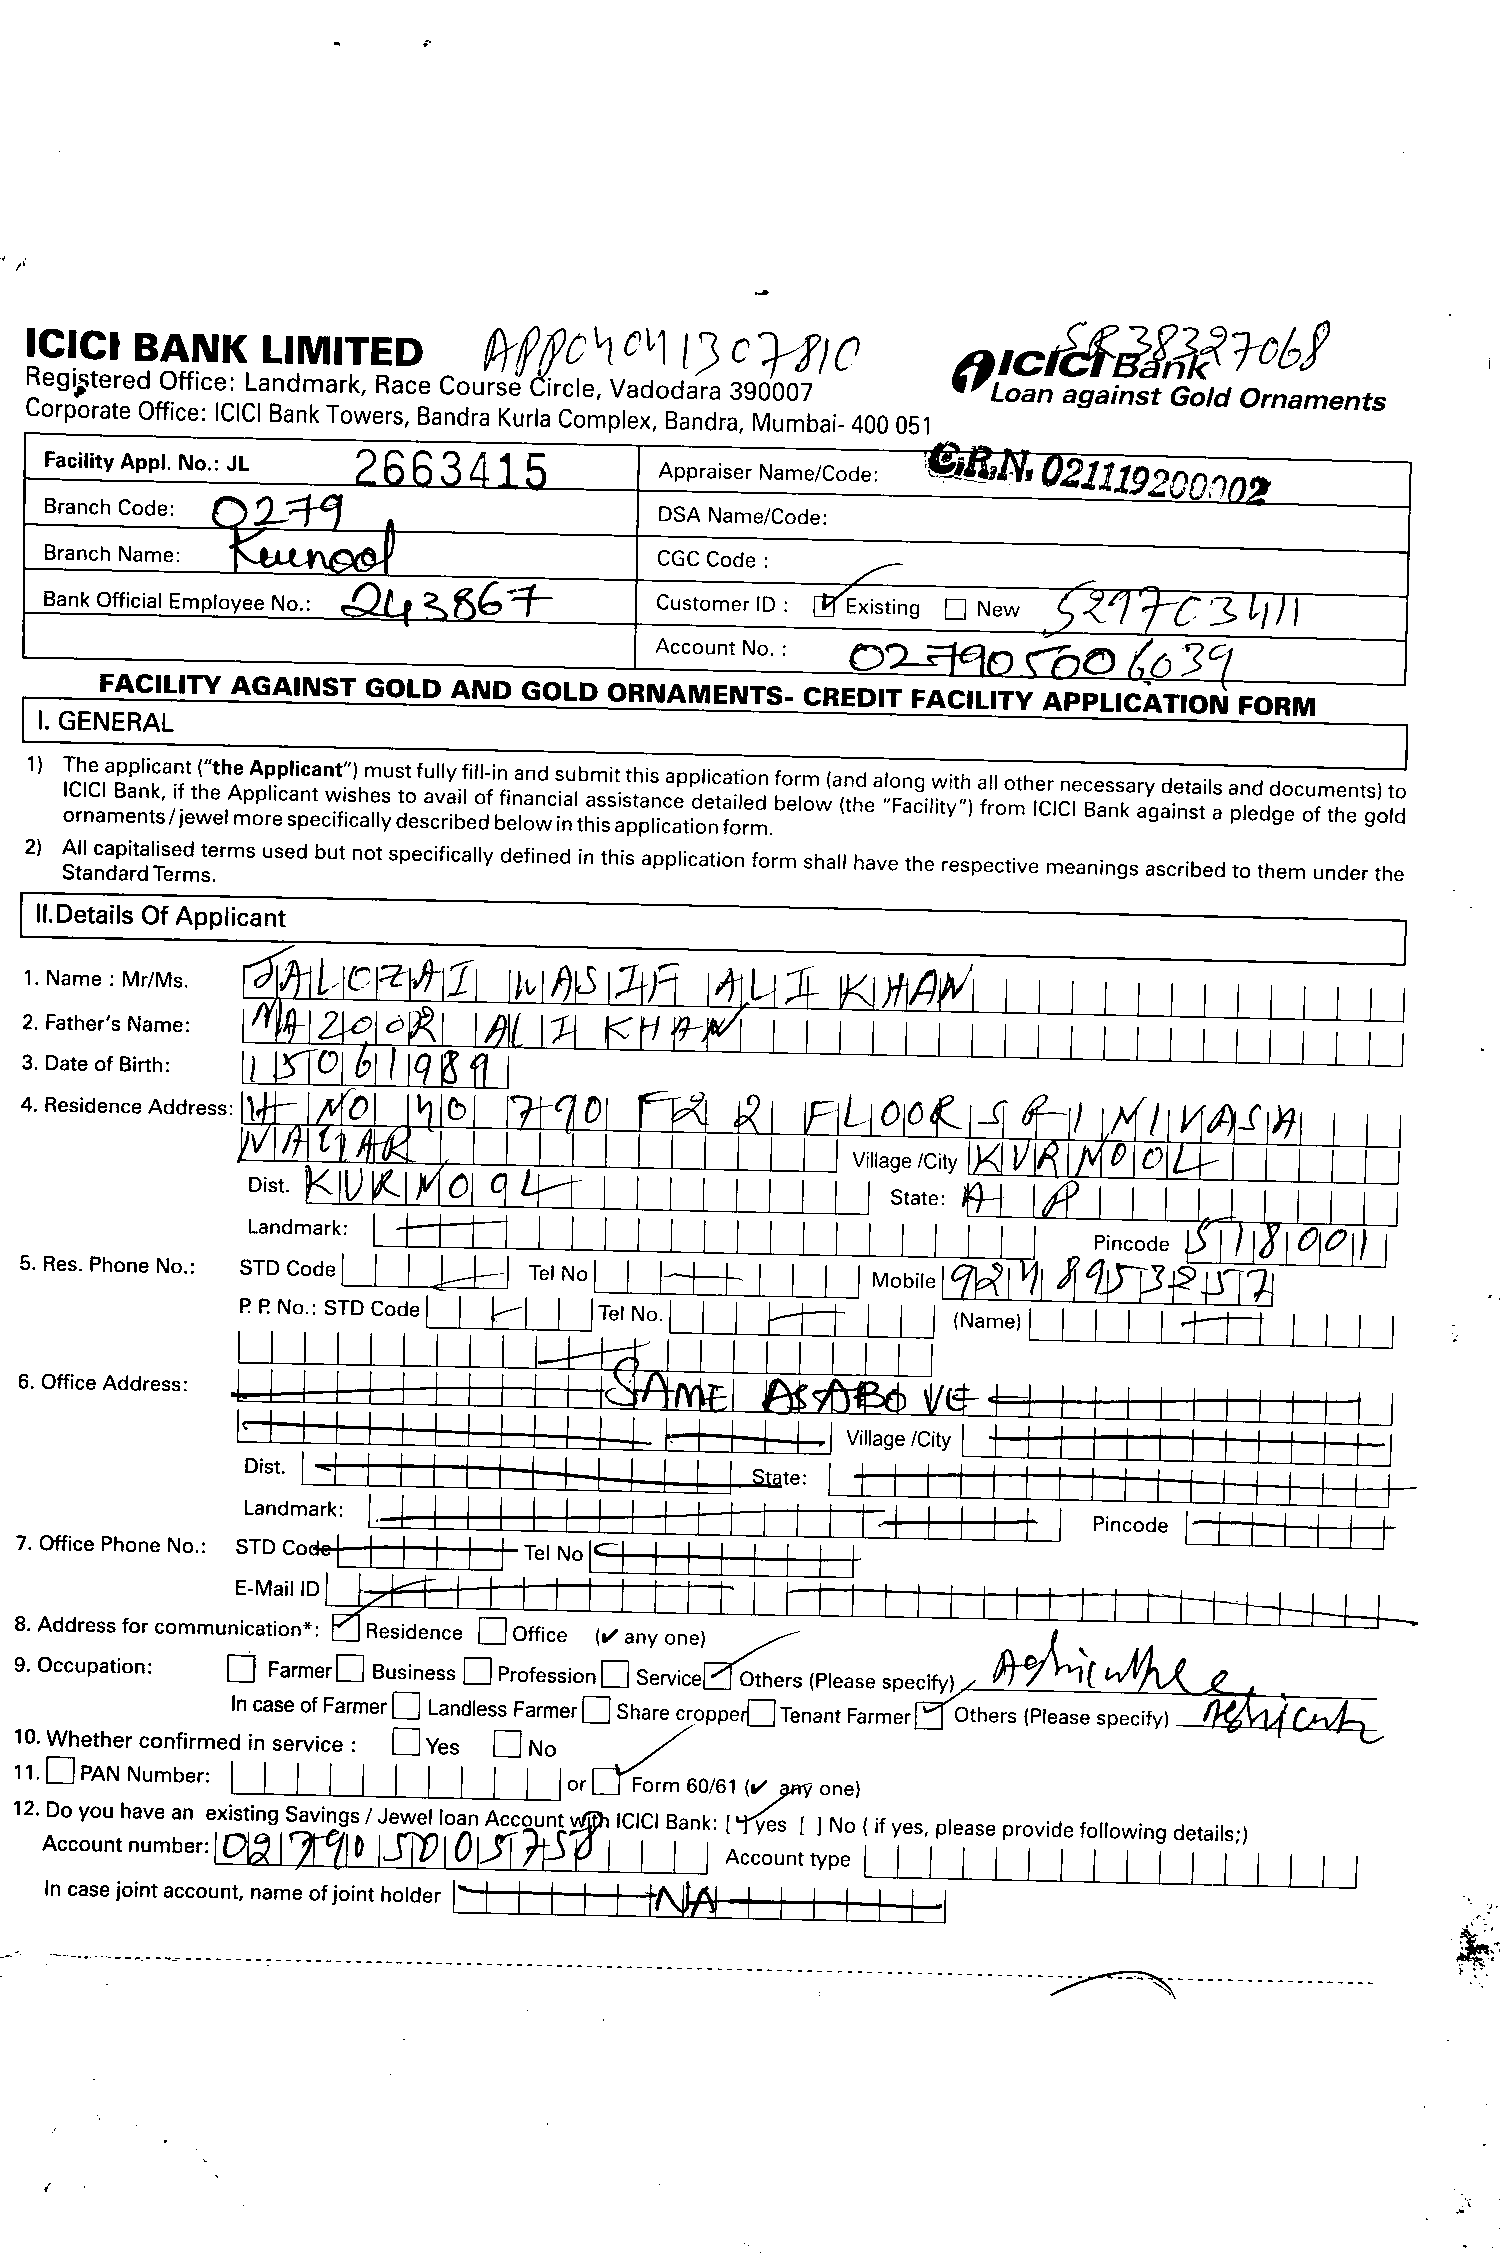 ICICI BANK LIMITED APPC4041307810 SR38327068
Registered Office: Landmark, Race Course Circle, Vadodara 390007 ICICI Bank
Corporate Office: ICICI Bank Towers, Bandra Kurla Complex, Bandra, Mumbai- 400 051 Loan against Gold Ornaments
Facility Appl. No.: JL 2663415 Appraiser Name/Code: C.R.N. 021119200002
Branch Code: 0279 DSA Name/Code:
Branch Name: Kurnool CGC Code :
Bank Official Employee No.: 243867 Customer ID : Existing New 529703411
Account No. : 027905006039
FACILITY AGAINST GOLD AND GOLD ORNAMENTS- CREDIT FACILITY APPLICATION FORM
I. GENERAL
1) The applicant ("the Applicant") must fully fill-in and submit this application form (and along with all other necessary details and documents) to
ICICI Bank, if the Applicant wishes to avail of financial assistance detailed below (the "Facility") from ICICI Bank against a pledge of the gold
ornaments/jewel more specifically described below in this application form.
2) All capitalised terms used but not specifically defined in this application form shall have the respective meanings ascribed to them under the
Standard Terms.
II.Details Of Applicant
1. Name : Mr/Ms. JALOZAI WASIF ALI KHAN
2. Father's Name: MAZOOR ALI KHAN
3. Date of Birth: 15061989
4. Residence Address: H NO 40 790 F2 2 FLOOR SRINIVASA
NAGAR Village /City KURNOOL
Dist. KURNOOL State: A P
Landmark: Pincode 518001
5. Res. Phone No.: STD Code Tel No Mobile 9248953257
P. P. No.: STD Code Tel No. (Name)
6. Office Address: SAME AS ABOVE
Village /City
Dist. State:
Landmark: Pincode
7. Office Phone No.: STD Code Tel No
E-Mail ID
8. Address for communication*: Residence Office (✔ any one)
9. Occupation: Farmer Business Profession Service Others (Please specify)
In case of Farmer Landless Farmer Share cropper Tenant Farmer Others (Please specify)
10. Whether confirmed in service : Yes No
11. PAN Number: or Form 60/61 (✔ any one)
12. Do you have an existing Savings / Jewel loan Account with ICICI Bank: [ ] yes [ ] No ( if yes, please provide following details;)
Account number: 027905005758 Account type
In case joint account, name of joint holder NA